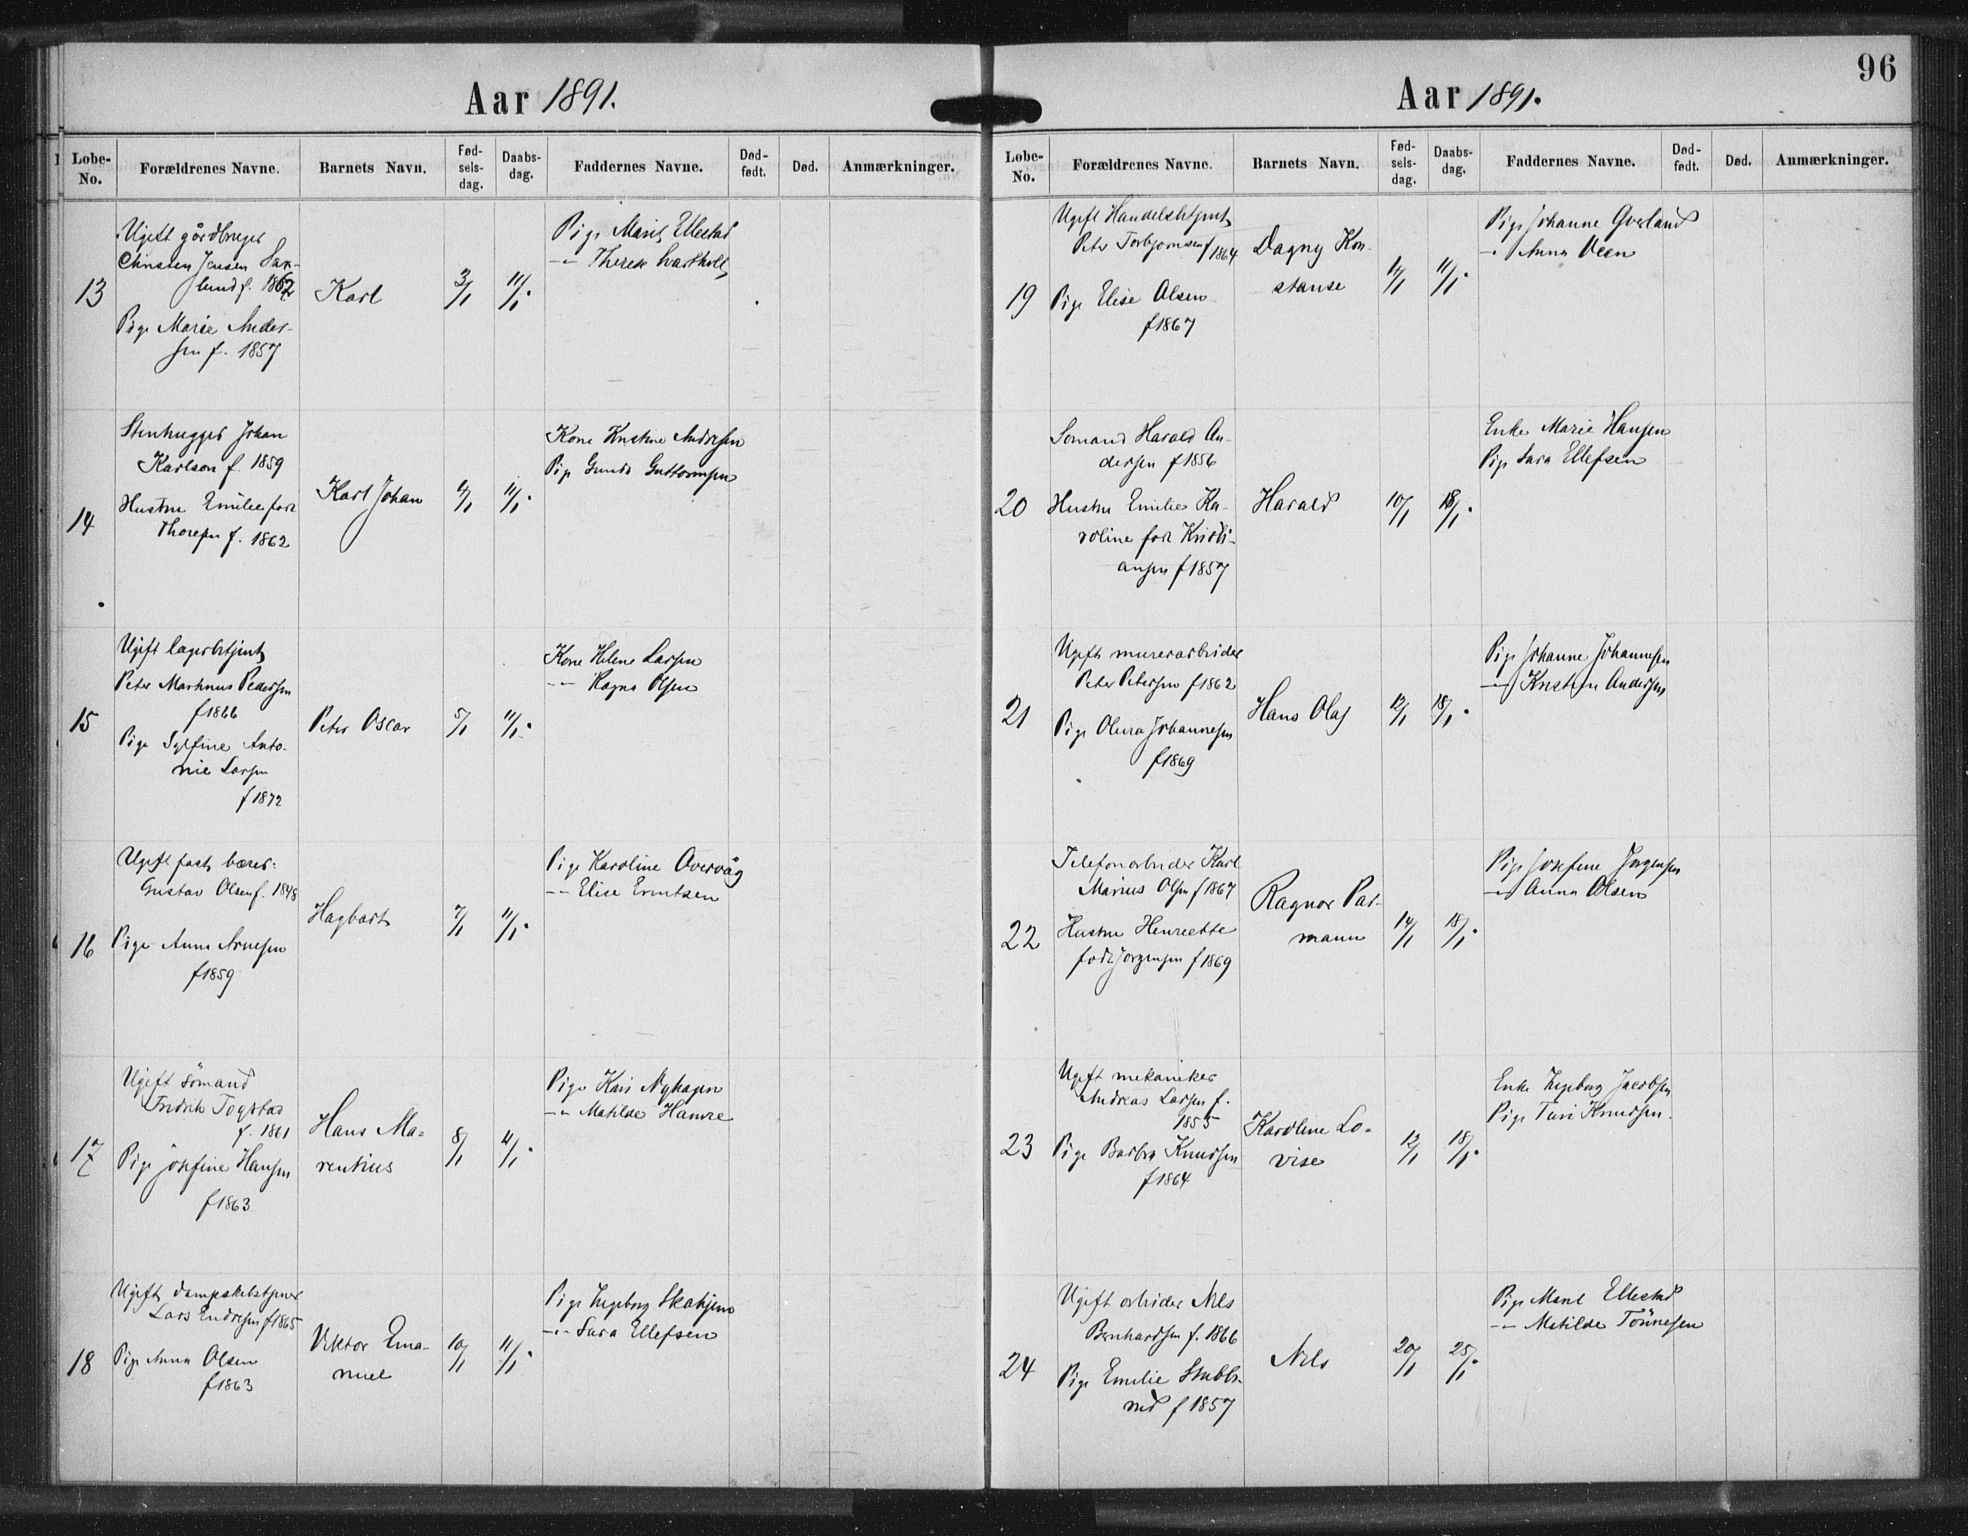 Aar 1891.
Løbe-No. Forældrenes Navne. Barnets Navn. Fød-sels-dag. Daabs-dag. Faddernes Navne. Død-født. Død. Anmærkninger.
13
Ugift gårdbruger
Christen Jensen
lund f. 1862
Pige Marie Ander-
sen f. 1857
Karl
3/1
11/1.
Pige Marit Ellestad
-"- Therese
14
Stenhugger Johan
Karlson f. 1859
Hustru Emilie født
Thoresen f. 1862
Karl Johan
11/1.
Kone Kristine Andresen
Pige Gunda Guttormsen
15
Ugift lagerbetjent
Peter Martinus Pedersen
f 1866
Pige Sylfine Anto-
nie Larsen
f 1872
Peter Oscar
5/1
11/1.
Kone Helene Larsen
-"- Ragna Olsen
16
Ugift fast bærer.
Gustav Olsen f. 1848
Pige Anna Arnesen
f 1859
Hagbart
7/1
11/1.
Pige Karoline Övervåg
-"- Elise Erntsen
17
Ugift sömand
Fredrik Togstad
f. 1861
Pige Josefine Hansen
f 1863
Hans Ma-
rentius
8/1
11/1.
Pige Kari Nyhagen
-"- Matilde Hamre
18
Ugift dampskibstjener
Lars Endresen f 1865
Pige Anna Olsen
f 1863
Viktor Ema-
nuel
10/1
11/1.
Pige Ingeborg Skahjem
-"- Sara Ellefsen
96
Aar 1891.
Løbe-No. Forældrenes Navne. Barnets Navn. Fød-sels-dag. Daabs-dag. Faddernes Navne. Død-født. Død. Anmærkninger.
19
Ugift Handelsbetjent
Peter Torbjornsen f 1864
Pige Elise Olsen
f 1867
Dagny Kon-
stanse
11/1.
Pige Johanne Gverland
-"- Anna Veen
20
Sømand Harald An-
dersen f 1856
Hustru Emilie Ka-
roline født Kristi-
ansen f 1857
Harald
10/1
18/1.
Enke Marie Hansen
Pige Sara Ellefsen
21
Ugift murerarbeider
Peter Petersen f 1862
Pige Olena Johannesen
f 1869
Hans Olaf
12/1
18/1.
Pige Johanne Johannesen
-"- Kristine Andersen
22
Telefonarbeider Karl
Marius Olsen f 1867
Hustru Henriette
født Jorgensen f 1869
Ragnar Par-
mann
14/1
18/1.
Pige Josefine Jorgensen
-"- Anna Olsen
23
Ugift mekaniker
Andreas Larsen f.
1855
Pige Barbra Knudsen
f 1864
Karoline Lo-
vise
12/1
18/1.
Enke Ingeborg Jacobsen
Pige Turi Knudsen.
24
Ugift arbeider Nils
Bernhardsen f. 1866
Pige Emilie Stubb-
rud f 1857
Nils
20/1
25/1.
Pige Marit Ellestad
-"- Matilde Tönnesen